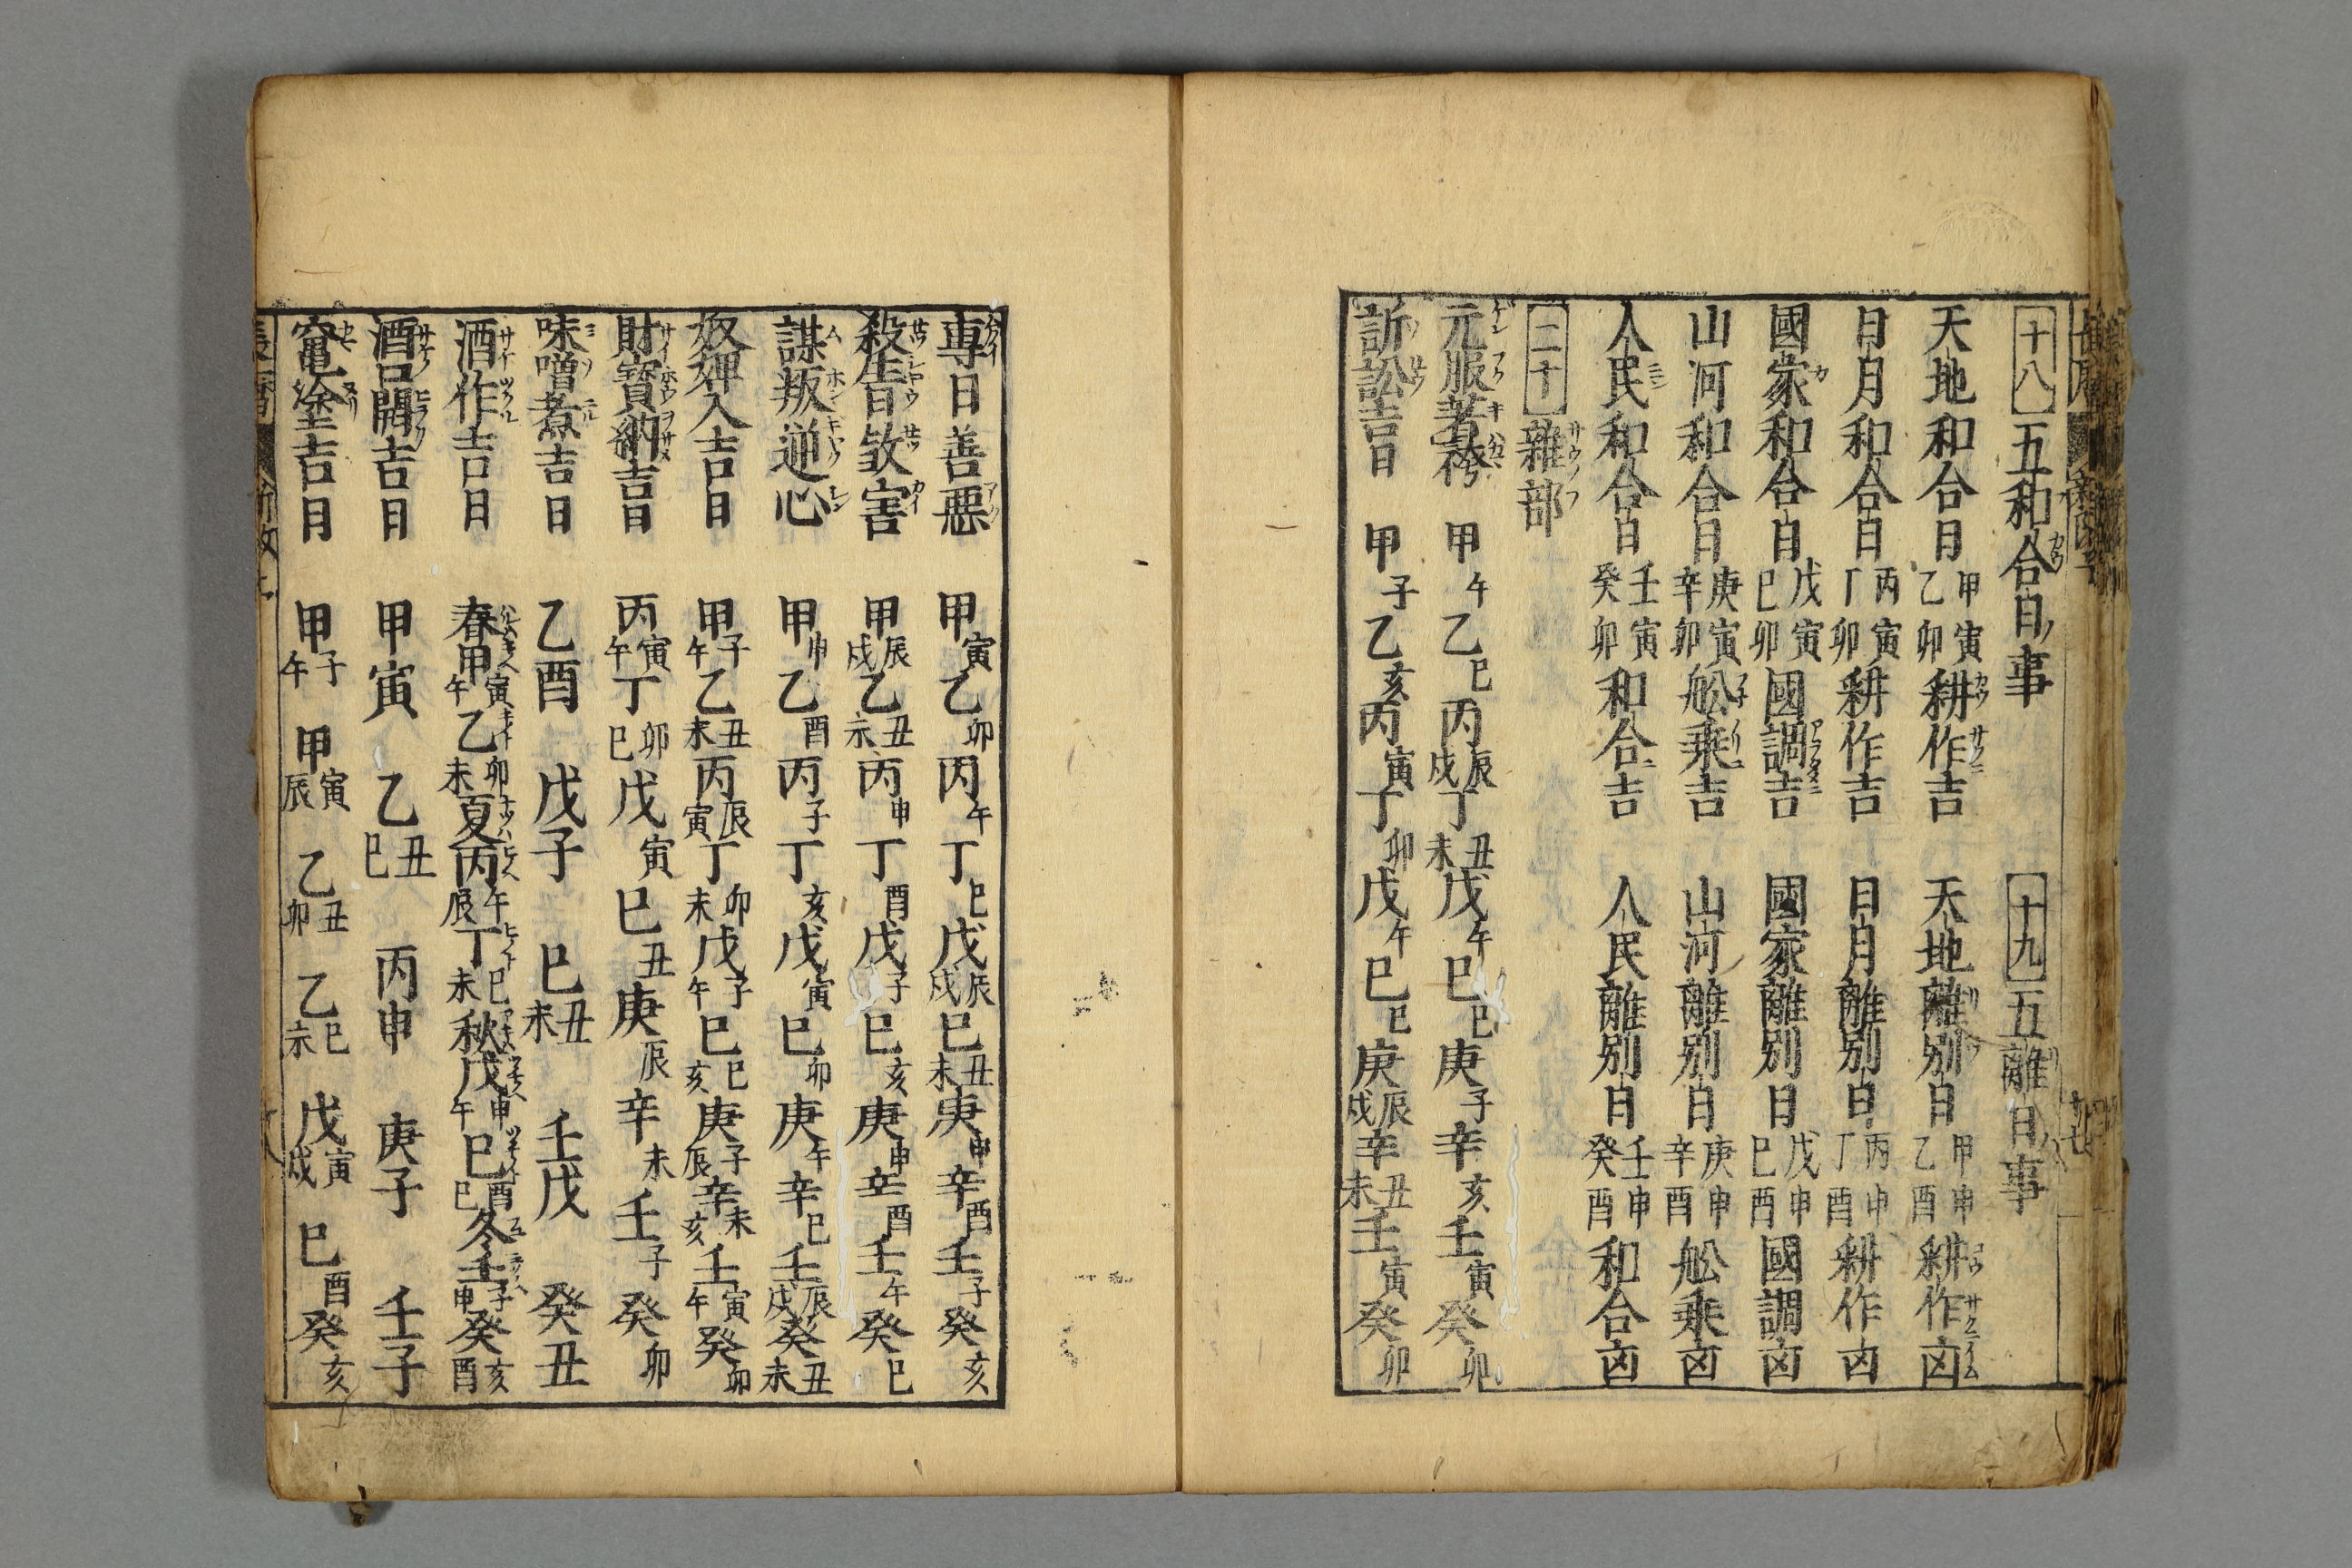 十八 五和合日ノ事 十九 五離日ノ事
天地和合日 甲寅 乙卯 耕作吉 天地離別日 甲申 乙酉 耕作凶
日月和合日 丙寅 丁卯 耕作吉 日月離別日 丙申 丁酉 耕作凶
國家和合日 戊寅 巳卯 國調吉 國家離別日 戊申 巳酉 國調凶
山河和合日 庚寅 辛卯 舩乗吉 山河離別日 庚申 辛酉 舩乗凶
人民和合日 壬寅 癸卯 和合吉 人民離別日 壬申 癸酉 和合凶
二十 雜部
元服著袴 甲午 乙巳 丙辰戌 丁丑未 戊午 巳巳 庚子 辛亥 壬寅 癸卯
訴訟吉日 甲子 乙亥 丙寅 丁卯 戊午 巳巳 庚辰戌 辛丑未 壬寅 癸卯
專日善惡 甲寅 乙卯 丙午 丁巳 戊辰戌 巳丑未 庚申 辛酉 壬子 癸亥
殺害 甲辰戌 乙丑未 丙申 丁酉 戊子 巳亥 庚申 辛酉 壬午 癸巳
謀叛逆心 甲申 乙酉 丙子 丁亥 戊寅 巳卯 庚午 辛巳 壬辰戌 癸丑未
奴婢入吉日 甲子午 乙丑未 丙辰寅 丁卯未 戊子午 巳巳亥 庚子辰 辛未亥 壬寅午 癸卯
財寶納吉日 丙寅午 丁卯巳 戊寅 巳丑 庚辰 辛未 壬子 癸卯
味噌煮吉日 乙酉 戊子 巳丑未 壬戌 癸丑
酒作吉日 春甲寅午 乙卯未 夏丙午辰 丁巳未 秋戊申午 巳酉巳 冬壬子申 癸亥酉
酒口開吉日 甲寅 乙丑巳 丙申 庚子 壬子
竈塗吉日 甲子午 甲寅辰 乙丑卯 乙巳未 戊寅戌 巳酉 癸亥